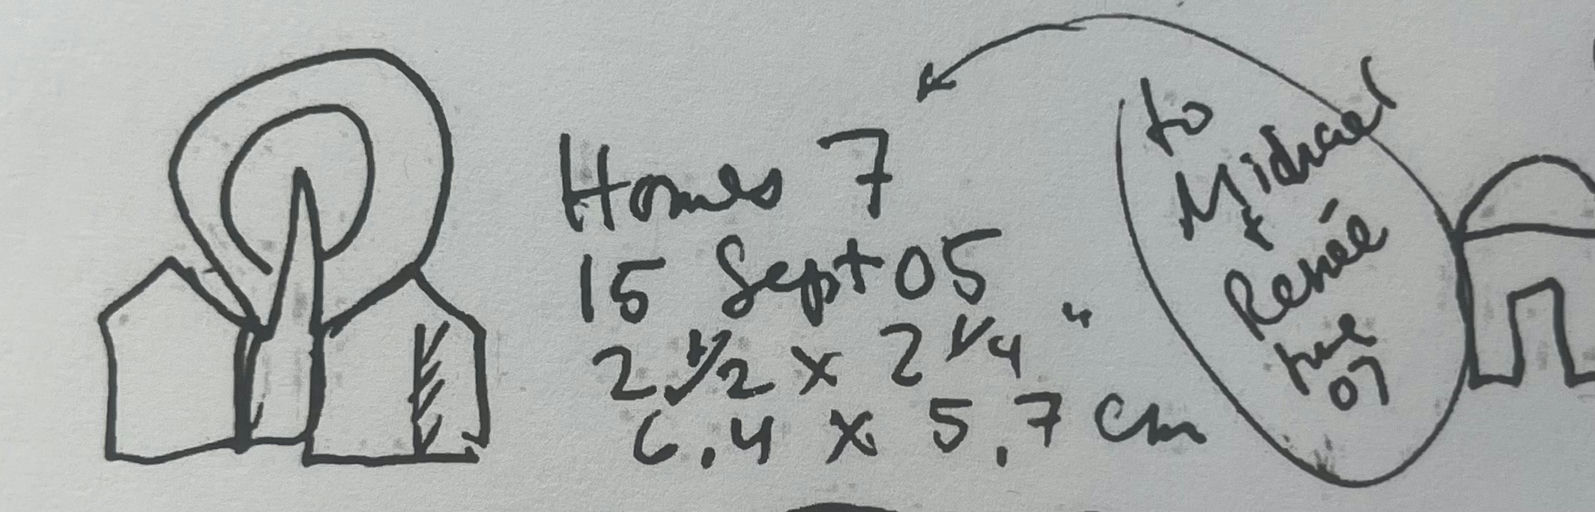 Homes 7
15 Sept 05
2 1/2 x 2 1/4 "
6.4 x 5.7 cm
to
Michael
+
Renée
07